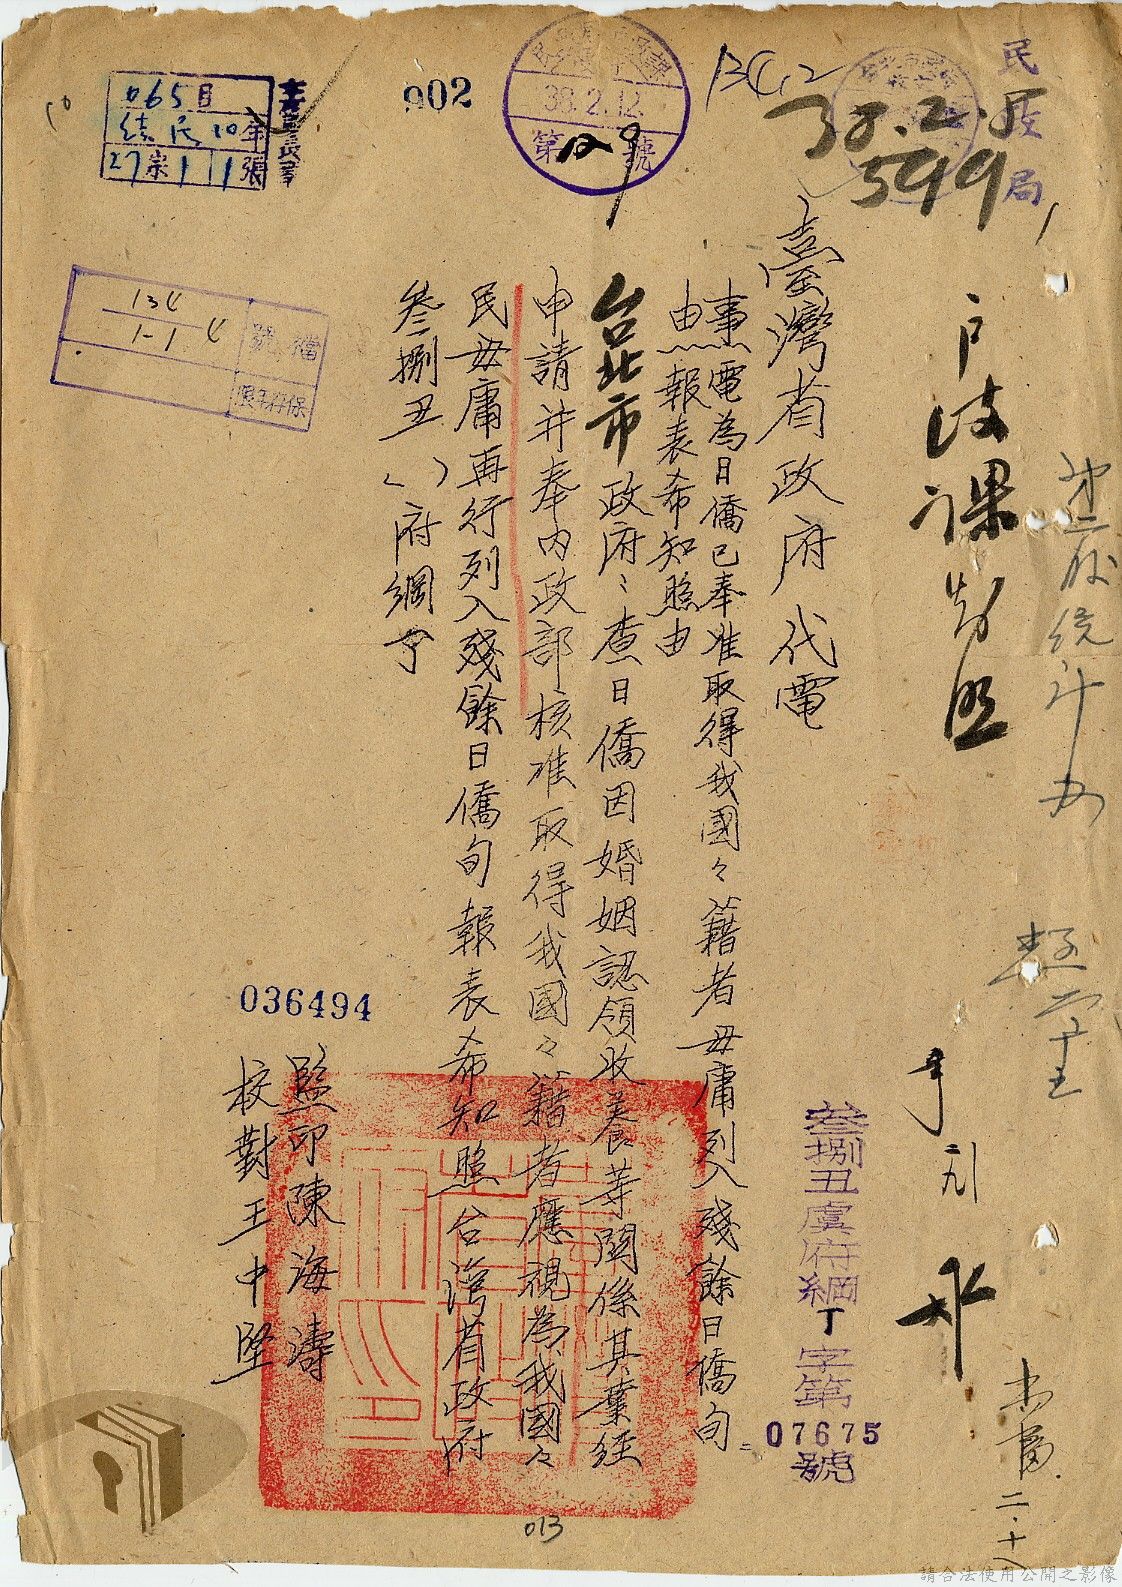 民政局
38.2.15
599
戶政課
臺灣省政府代電
叁捌丑虞府綱丁字第07675號
事由
電為日僑已奉准取得我國々籍者毋庸列入殘餘日僑旬
報表希知照由
台北市政府:查日僑因婚姻認領收養等關係其業經
申請并奉內政部核准取得我國々籍者應視為我國々
民毋庸再行列入殘餘日僑旬報表希知照台灣省政府
叁捌丑( )府綱丁
監印陳海濤
校對王中堅
036494
902
38.2.12.
第129號
134.2
065目
續民10年
27宗11張
檔號
134
1-1
4
保存年限
二.十八
013
請合法使用公開之影像